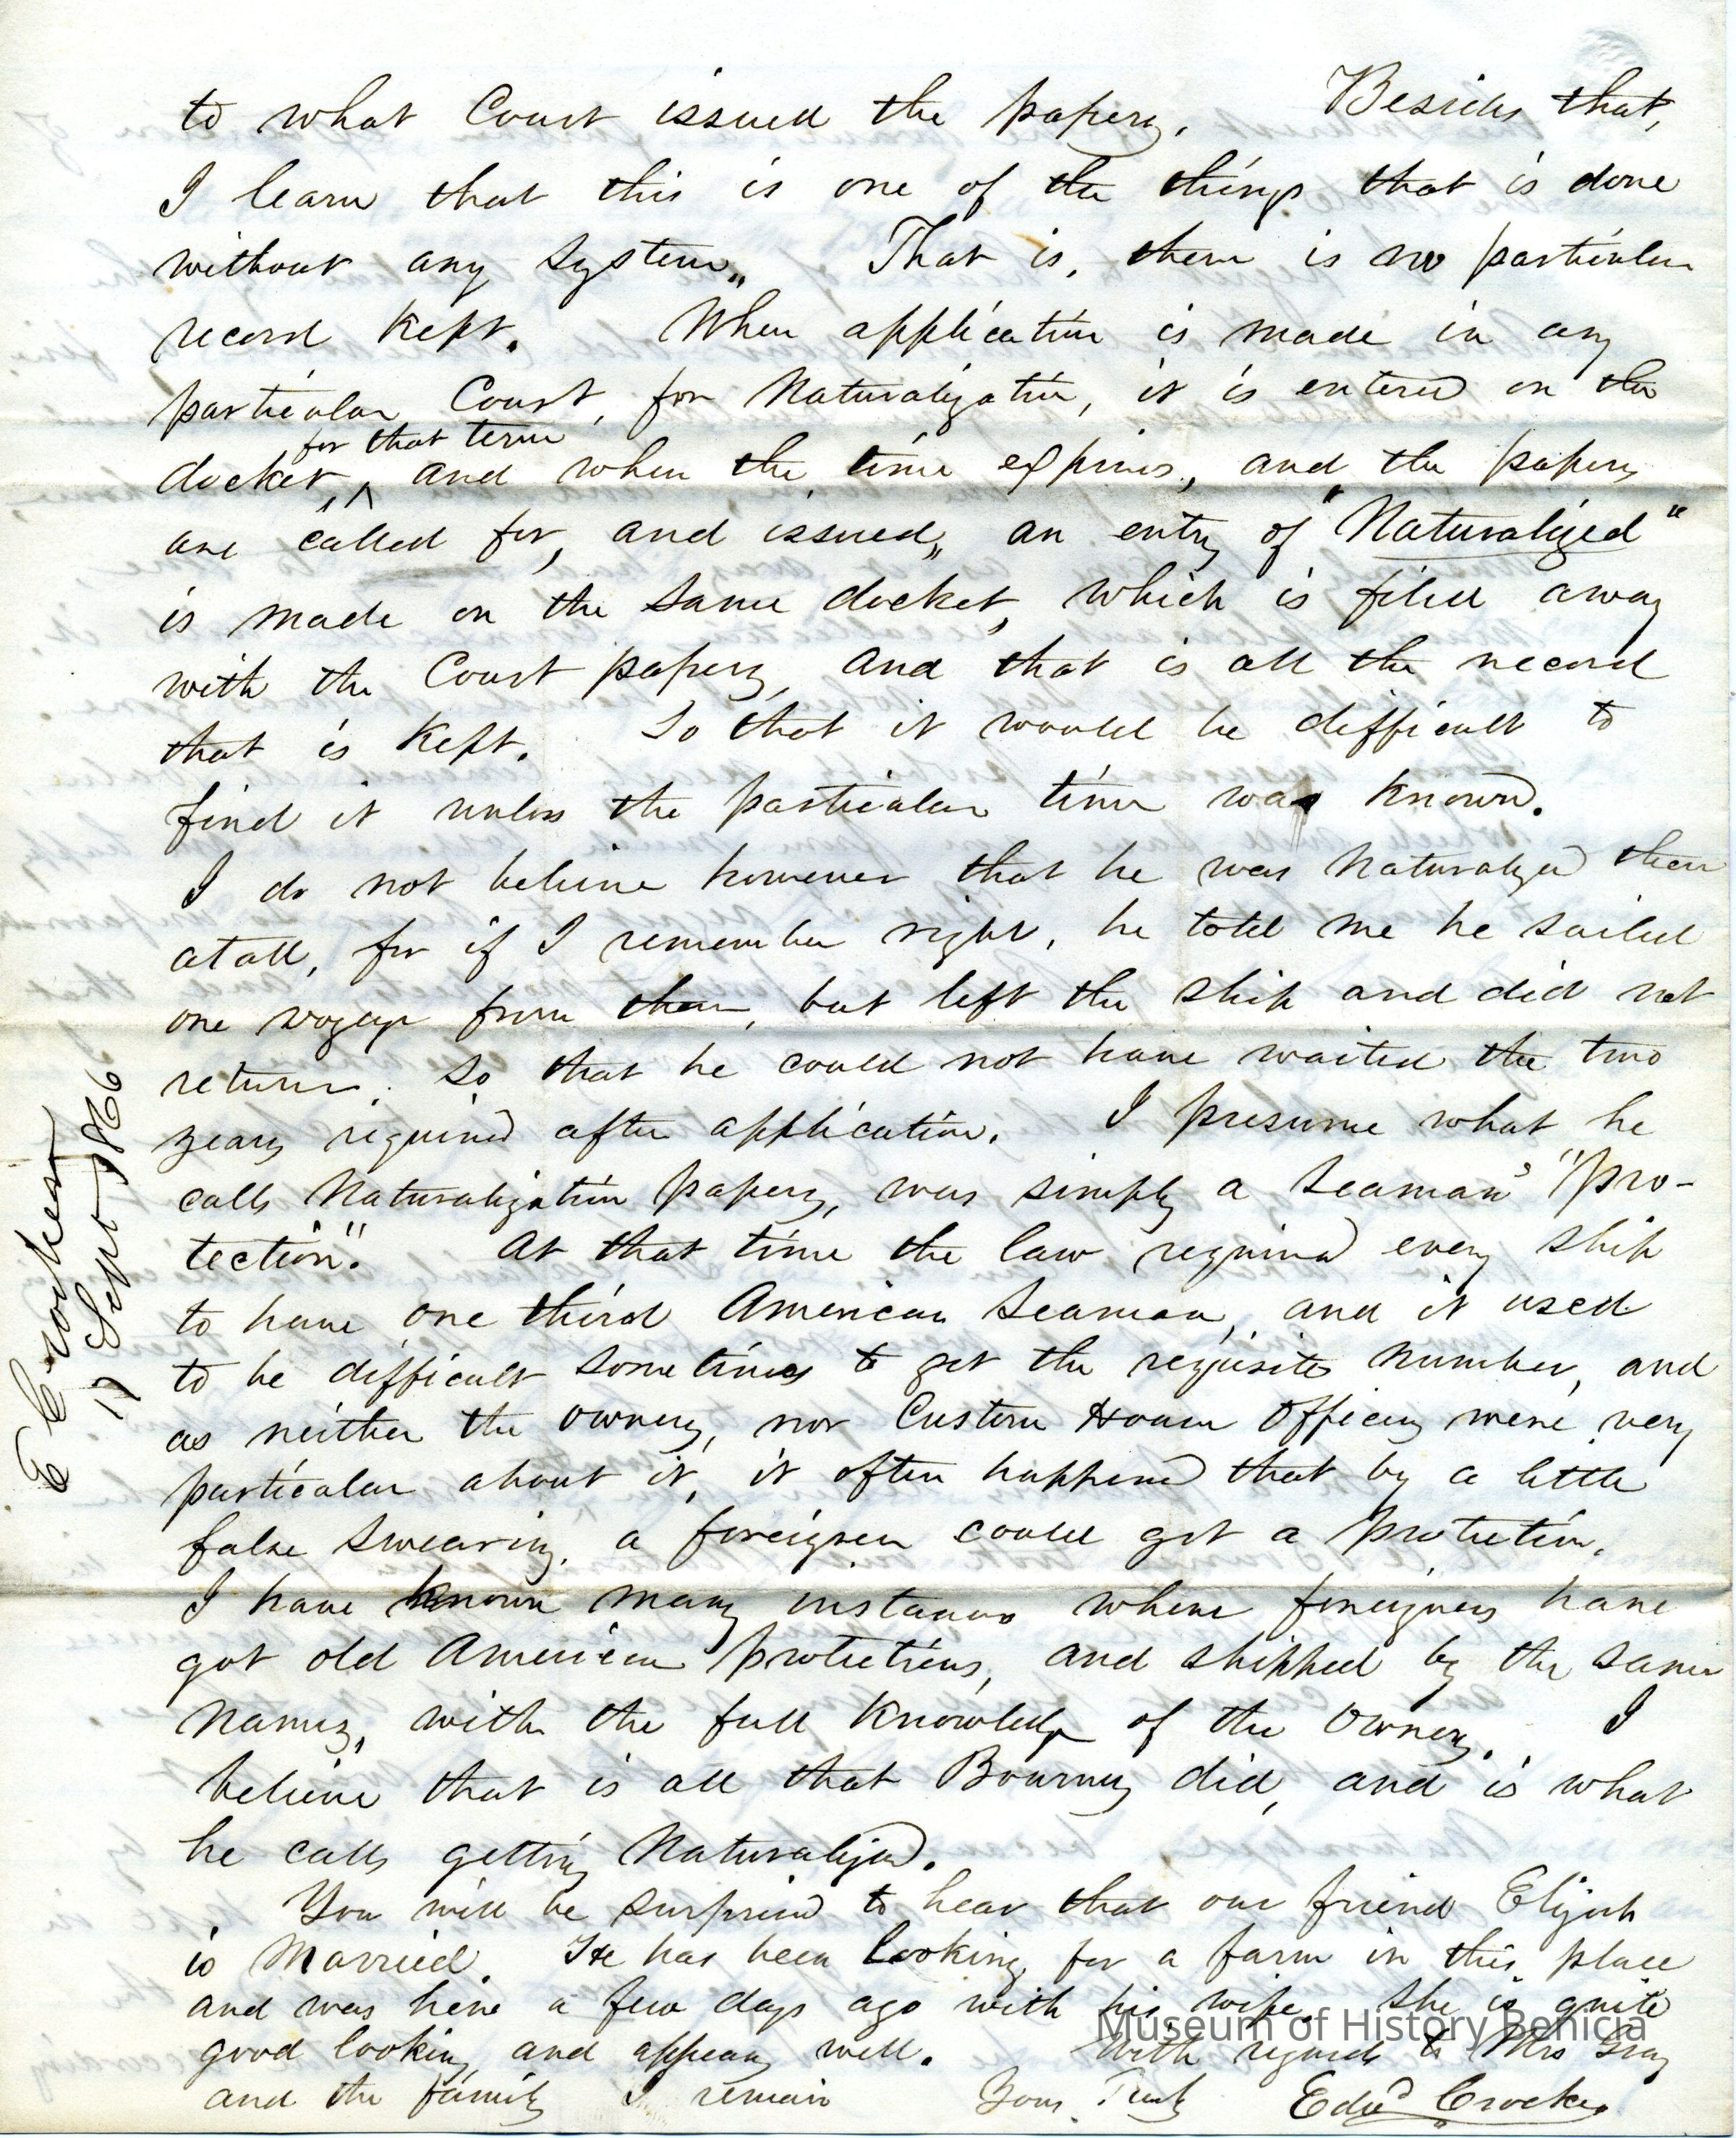 to what Court issued the papers. Besides that,
I learn that this is one of the things that is done
without any system,, That is, there is no particular
record Kept. When application is made in any
particular Court, for Naturalization, it is entered on the
for that term
docket, ^ and when the time expires, and the papers
are called for, and issued,, an entry of "Naturalized"
is made on the same docket, which is filed away
with the Court papers, and that is all the record
that is Kept. So that it would be difficult to
find it unless the particular time was Known.
I do not believe however that he was Naturalized then
atall, for if I remember right, he told me he sailed
one voyage from there, but left the ship and did not
return. So that he could not have waited the two
years required after application. I presume what he
calls Naturalization papers, was simply a Seaman's "pro-
tection". At that time the law required every ship
to have one third American Seaman, and it used
to be difficult sometimes to get the requisite number, and
as neither the owners, nor Custom House Officers were very
particular about it, it often happened that by a little
false swearing, a foreigner could get a protection.
I have known many instances where foreigners have
got old American protections, and shipped by the same
names, with the full Knowledge of the owners. I
believe that is all that Bourney did, and is what
he calls getting Naturalized.
You will be surprised to hear that our friend Elijah
is Married. He has been looking for a farm in this place
and was here a few days ago with his wife. She is quite
good looking and appears well. With regards to Mrs Gray
and the family I remain Yours Truly Edwd Crocker
E Crocker
17 Sept 1866
Museum of History Benicia